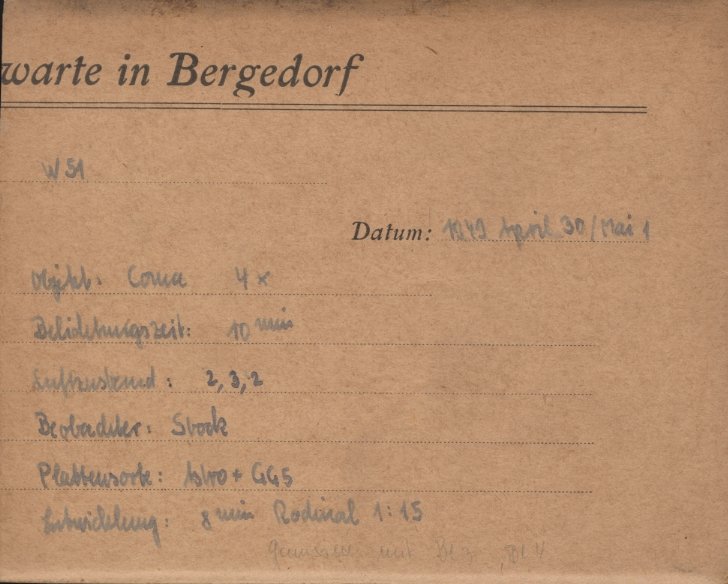 warte in Bergedorf
WS1
Datum: 1949 April 30/Mai 1
Objekt: Coma 4 x
Belichtungszeit: 10 min
Luftzustand: 2, 3, 2
Beobachter: Stock
Plattensorte: Astro + GG5
Entwicklung: 8 min Rodinal 1:15
gemessen mit